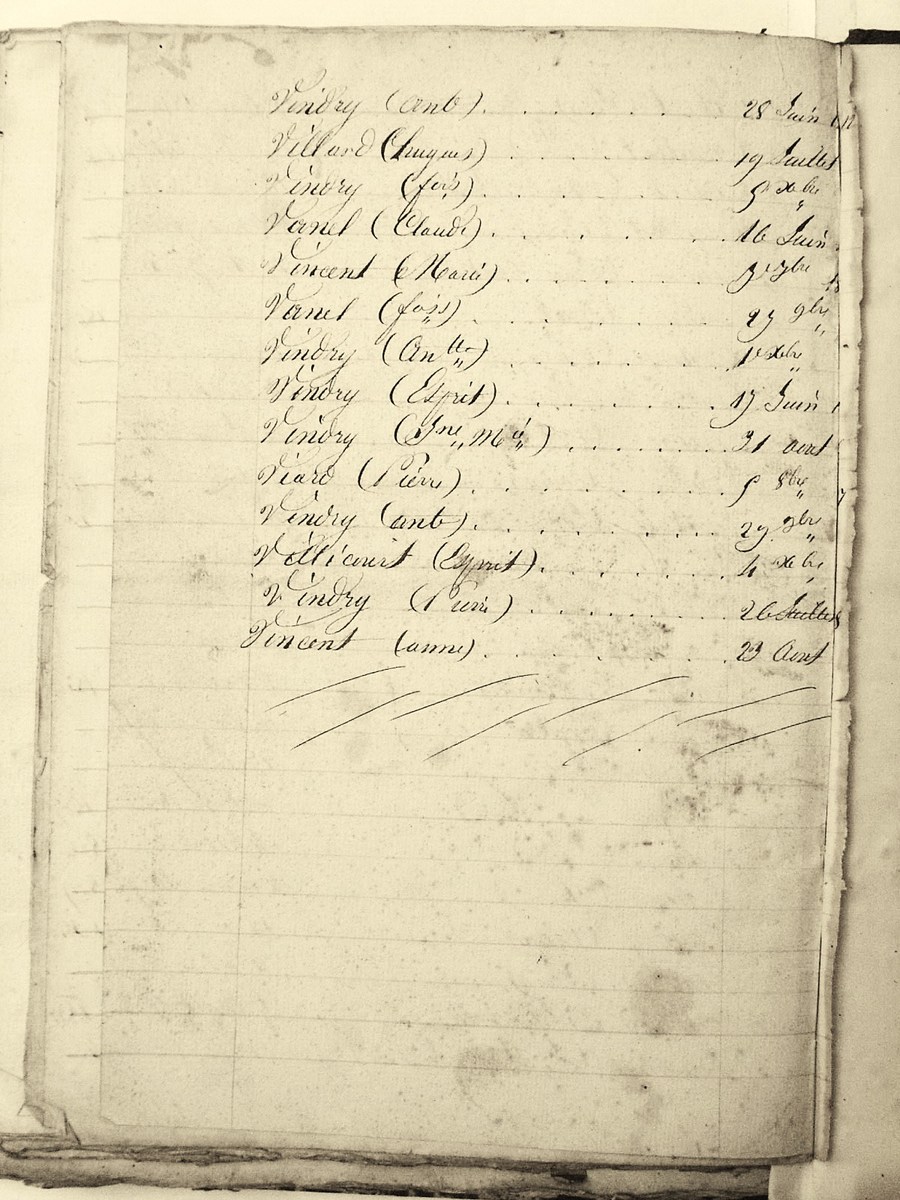 Vindry (Ant) . . . . . . 28 Juin
Villard (hugues) . . . . . 19 Juillet
Vindry (fois) . . . . . . 5 xbre
Vanel (Claude) . . . . . . 16 Juin
Vincent (Marie) . . . . . . 3 7bre
Vanel (foiss) . . . . . . 27 9bre
Vindry (Antte) . . . . . . 1er xbre
Vindry (Esprit) . . . . . . 17 Juin
Vindry (Jne Mie) . . . . . 31 aout
Viard (Pierre) . . . . . . 5 8bre
Vindry (ant) . . . . . . 29 9bre
Villicourt (Esprit) . . . . . 4 xbre
Vindry (Pierre) . . . . . . 26 Juillet
Vincent (anne) . . . . . . 23 Aout